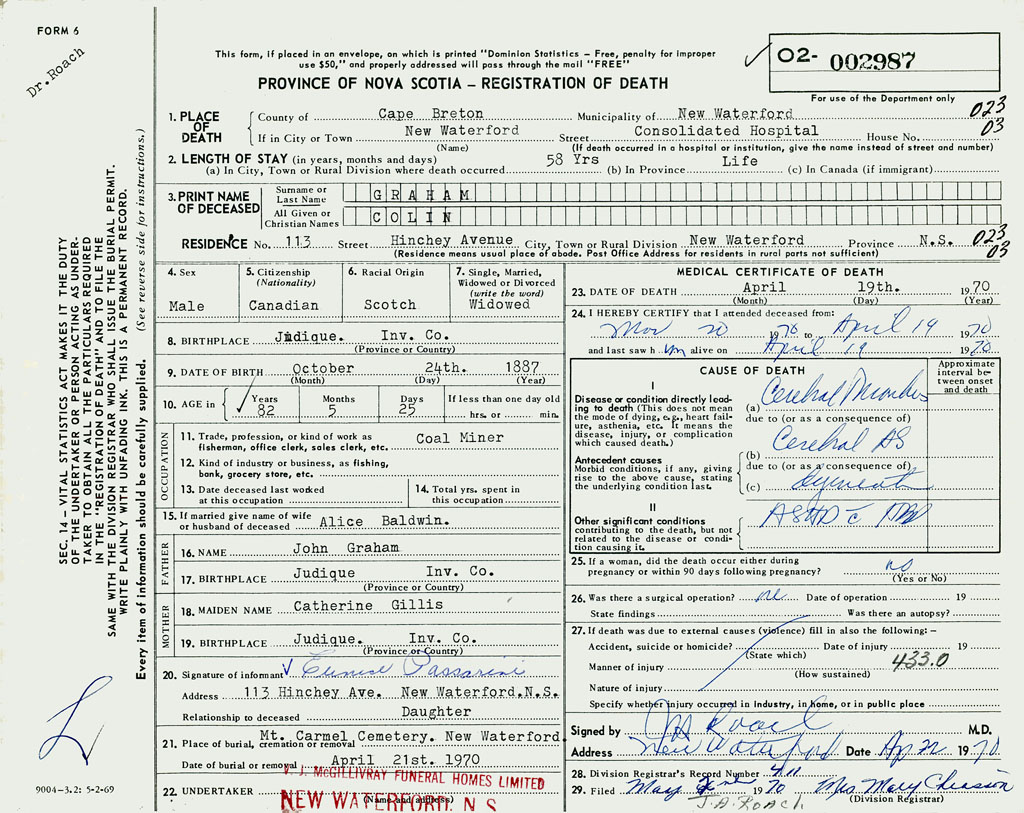 FORM 6
Dr. Roach
This form, if placed in an envelope, on which is printed "Dominion Statistics – Free, penalty for improper
use $50," and properly addressed will pass through the mail "FREE"
PROVINCE OF NOVA SCOTIA – REGISTRATION OF DEATH
02- 002987
For use of the Department only
SEC. 14 – VITAL STATISTICS ACT MAKES IT THE DUTY
OF THE UNDERTAKER OR PERSON ACTING AS UNDER-
TAKER TO OBTAIN ALL THE PARTICULARS REQUIRED
IN THE "REGISTRATION OF DEATH" AND TO FILE THE
SAME WITH THE DIVISION REGISTRAR WHO SHALL ISSUE THE BURIAL PERMIT.
WRITE PLAINLY WITH UNFADING INK. THIS IS A PERMANENT RECORD.
Every item of information should be carefully supplied. (See reverse side for instructions.)
1. PLACE OF DEATH
County of Cape Breton Municipality of New Waterford 023
If in City or Town New Waterford Street Consolidated Hospital House No. 03
(Name) (If death occurred in a hospital or institution, give the name instead of street and number)
2. LENGTH OF STAY (in years, months and days) 58 Yrs Life
(a) In City, Town or Rural Division where death occurred (b) In Province (c) In Canada (if immigrant)
3. PRINT NAME OF DECEASED
Surname or Last Name GRAHAM
All Given or Christian Names COLIN
RESIDENCE No. 113 Street Hinchey Avenue City, Town or Rural Division New Waterford Province N.S. 023
(Residence means usual place of abode. Post Office Address for residents in rural parts not sufficient) 03
4. Sex
Male
5. Citizenship (Nationality)
Canadian
6. Racial Origin
Scotch
7. Single, Married, Widowed or Divorced (write the word)
Widowed
8. BIRTHPLACE Judique. Inv. Co.
(Province or Country)
9. DATE OF BIRTH October 24th. 1887
(Month) (Day) (Year)
10. AGE in Years 82 Months 5 Days 25 If less than one day old hrs. or min.
OCCUPATION
11. Trade, profession, or kind of work as fisherman, office clerk, sales clerk, etc. Coal Miner
12. Kind of industry or business, as fishing, bank, grocery store, etc.
13. Date deceased last worked at this occupation
14. Total yrs. spent in this occupation
15. If married give name of wife or husband of deceased Alice Baldwin.
FATHER
16. NAME John Graham
17. BIRTHPLACE Judique Inv. Co.
(Province or Country)
MOTHER
18. MAIDEN NAME Catherine Gillis
19. BIRTHPLACE Judique. Inv. Co.
(Province or Country)
20. Signature of informant Eunice Passarini
Address 113 Hinchey Ave. New Waterford.N.S.
Relationship to deceased Daughter
21. Place of burial, cremation or removal Mt. Carmel Cemetery. New Waterford
Date of burial or removal April 21st. 1970
22. UNDERTAKER V. J. McGILLIVRAY FUNERAL HOMES LIMITED
(Name and address) NEW WATERFORD, N. S.
9004-3.2: 5-2-69
MEDICAL CERTIFICATE OF DEATH
23. DATE OF DEATH April 19th. 1970
(Month) (Day) (Year)
24. I HEREBY CERTIFY that I attended deceased from:
Mar 20 1970 to April 19 1970
and last saw him alive on April 19 1970
CAUSE OF DEATH
Approximate interval between onset and death
I
Disease or condition directly leading to death (This does not mean the mode of dying, e.g., heart failure, asthenia, etc. It means the disease, injury, or complication which caused death.)
(a) Cerebral
due to (or as a consequence of)
Antecedent causes
Morbid conditions, if any, giving rise to the above cause, stating the underlying condition last.
(b) Cerebral AS
due to (or as a consequence of)
(c)
II
Other significant conditions contributing to the death, but not related to the disease or condition causing it.
ASHD c
25. If a woman, did the death occur either during pregnancy or within 90 days following pregnancy? no
(Yes or No)
26. Was there a surgical operation? no Date of operation 19
State findings Was there an autopsy?
27. If death was due to external causes (violence) fill in also the following: –
Accident, suicide or homicide? Date of injury 19
(State which)
Manner of injury 433.0
(How sustained)
Nature of injury
Specify whether injury occurred in industry, in home, or in public place
Signed by J A Roach M.D.
Address New Waterford Date Ap 22 1970
28. Division Registrar's Record Number 411
29. Filed May 1970 Mrs Mary Chiasson
J.A. ROACH (Division Registrar)